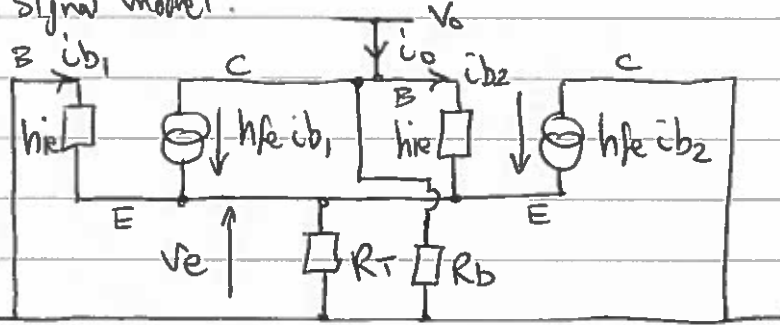 Signal model.
Vo
B ib1 C io ib2 C
B
hie hfe ib1 hie hfe ib2
E E
Ve RT Rb